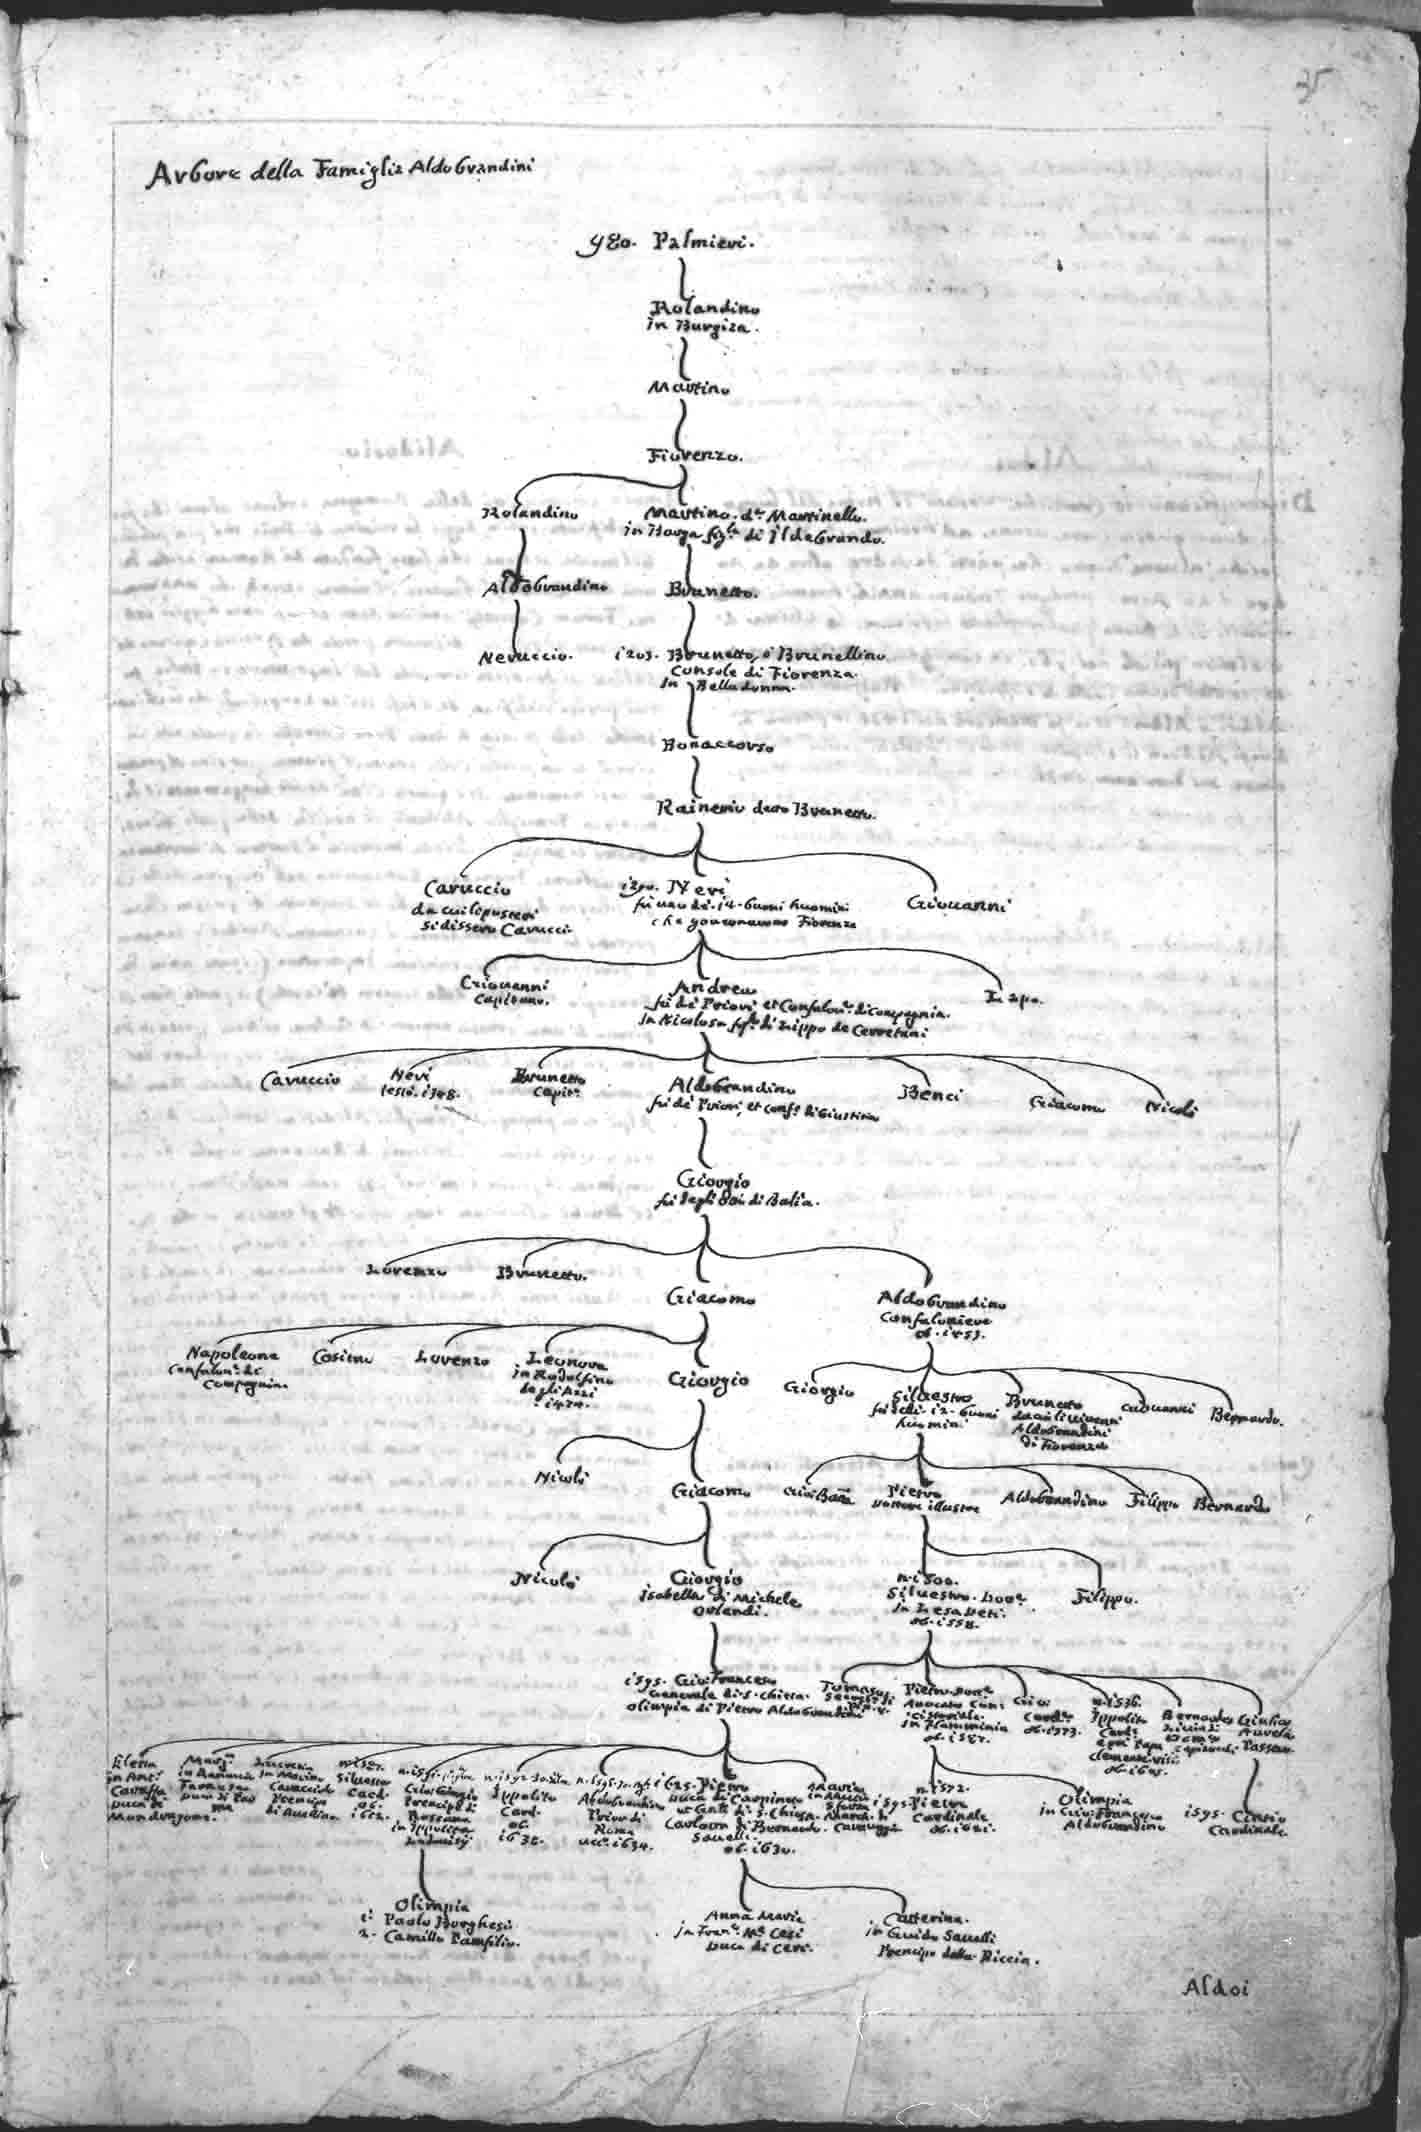 35
Arbore della Famiglia Aldobrandini
980. Palmieri.
Rolandino
in Burgiza.
Martino
Fiorenzo.
Rolandino
Martino. do. Martinello.
in Borga figla di Ildebrando.
Aldobrandino
Brunetto.
Neruccio.
1203. Brunetto, ò Brunellino
Console di Fiorenza.
In Belladonna.
Bonaccorso
Rainerio detto Brunetto.
Caruccio
da cui li posteri
si dissero Carucci
Neri
fù uno de 14. buoni huomini
che governavano Fiorenza
Giouanni
Giouanni
Capitano.
Andrea
fù de Priori et Confalonr. di Compagnia.
In Nicolosa figla di Lippo de Cerretani
Lapo.
Caruccio
Neri
testò. 1348.
Brunetto
Capitº.
Aldobrandino
fù de Priori, et Confr. di Giustitia
Benci
Giacomo
Nicolò
Giorgio
fù degli Otto di Balia.
Lorenzo
Brunetto.
Giacomo
Aldobrandino
Confaloniere
ob. 1453.
Napoleone
Confalonr. di
Compagnia.
Cosimo
Lorenzo
Leonora
in Rodolfino
degli
1474.
Giorgio
Giorgio
Siluestro
fù delli 12. buoni
huomini
Brunetto
da cui li viventi
Aldobrandini
di Fiorenza
Giouanni
Bernardo.
Nicolò
Giacomo
Gio: Batta
Pietro
Dottore illustre
Aldobrandino
Filippo
Bernardo
Nicolò
Giorgio
Isabella di Michele
Orlandi.
n. 1500.
Siluestro. Dotte.
In Lesa Deti.
ob. 1558.
Filippo.
1595. Gio: Francesco
Generale di S. Chiesa.
Olimpia di Pietro Aldobrandini
Tomaso
Pietro Dotte.
Auocato Con:
cistoriale.
In Flamminia
ob. 1587.
Gio:
Cardle.
ob. 1573.
n. 1536.
Ippolito
Cardl.
e poi Papa
Clemente VIII.
ob. 1605.
Bernardo
Giulia
Aurelio
Passeri.
Elena
in Antº.
Caraffa
Duca di
Mondragone.
Margta.
in Ranuccio
Farnese
Duca di Par
ma
Lucrezia
in Marino
Caracciolo
Prencipe
di Auellino
n. 1587.
Siluestro
Card.
ob.
1612.
Gio: Giorgio
Prencipe di
Rossano
in Ippolita
Ludouisij
Ippolito
Card.
ob.
1638.
Aldobrandino
Prior di
Roma
ucc. 1634.
1625. Pietro
Duca di Carpineto
et Genle di S. Chiesa.
Carlotta di Bernardo
Sauelli.
ob. 1630.
Maria
in Mutio
Sforza
March. di
Carauaggio
n. 1572.
1593. Pietro
Cardinale
ob. 1621.
Olimpia
in Gio: Francesco
Aldobrandino
1593. Cintio
Cardinale.
Olimpia
1. Paolo Borghesi
2. Camillo Panfilio.
Anna Maria
in Franco. Ma. Cesi
Duca di Ceri.
Catterina.
in Guido Sauelli
Prencipe della Riccia.
Aldoi